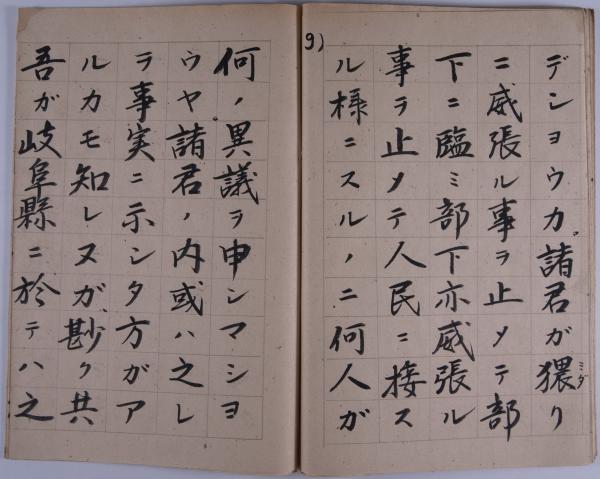 9)
デシヨウカ。諸君ガ猥リ
ミダ
ニ威張ル事ヲ止メテ部
下ニ臨ミ部下亦威張ル
事ヲ止メテ人民ニ接ス
ル様ニスルノニ何人ガ
何ノ異議ヲ申シマシヨ
ウヤ。諸君ノ内或ハ之レ
ヲ事実ニ示シタ方ガア
ルカモ知レヌガ、尠ク共
吾ガ岐阜縣ニ於テハ之